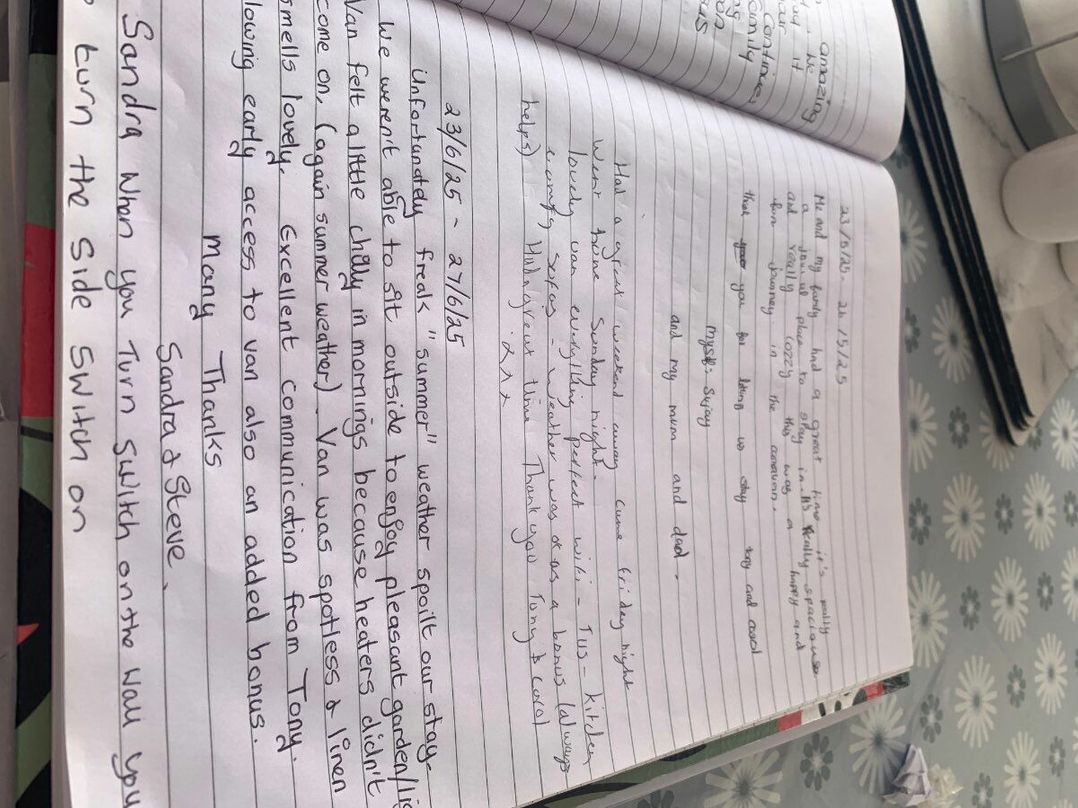 amazing
. he
it
Continues
family
23/5/25 - 26/5/25
Me and my family had a great time it's really
a joyful place to stay in. It's really spacious
and really cozzy this was a happy and
fun journey in the caravan.
that you for letting us stay tony and carol
myself - Sujay
and my mum and dad.
Had a great weekend away came friday night
went home Sunday night.
lovely van everything perfect wifi - Tvs - kitchen
comfy sofas - Weather was ok as a bonus (always
helps) Had great time Thankyou Tony & Carol
23/6/25 - 27/6/25
Unfortunately freak "summer" weather spoilt our stay.
We weren't able to sit outside to enjoy pleasant garden/
Van felt a little chilly in mornings because heaters didn't
come on, (again summer weather). Van was spotless & linen
smells lovely. Excellent communication from Tony.
lowing early access to van also an added bonus.
Many Thanks
Sandra & Steve.
Sandra when you Turn switch on the wall you
turn the side switch on